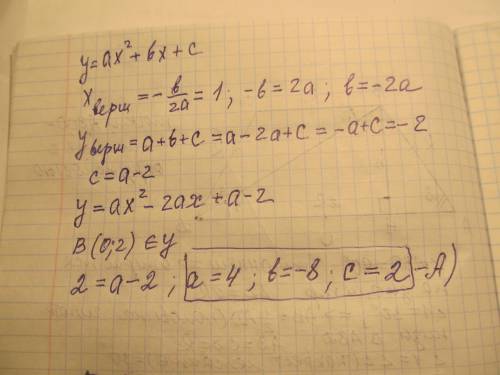 y=ax²+bx+c
xверш=-b/2a=1; -b=2a; b=-2a
yверш=a+b+c=a-2a+c=-a+c=-2
c=a-2
y=ax²-2ax+a-2
B(0;2)∈y
2=a-2; a=4; b=-8; c=2 -A)